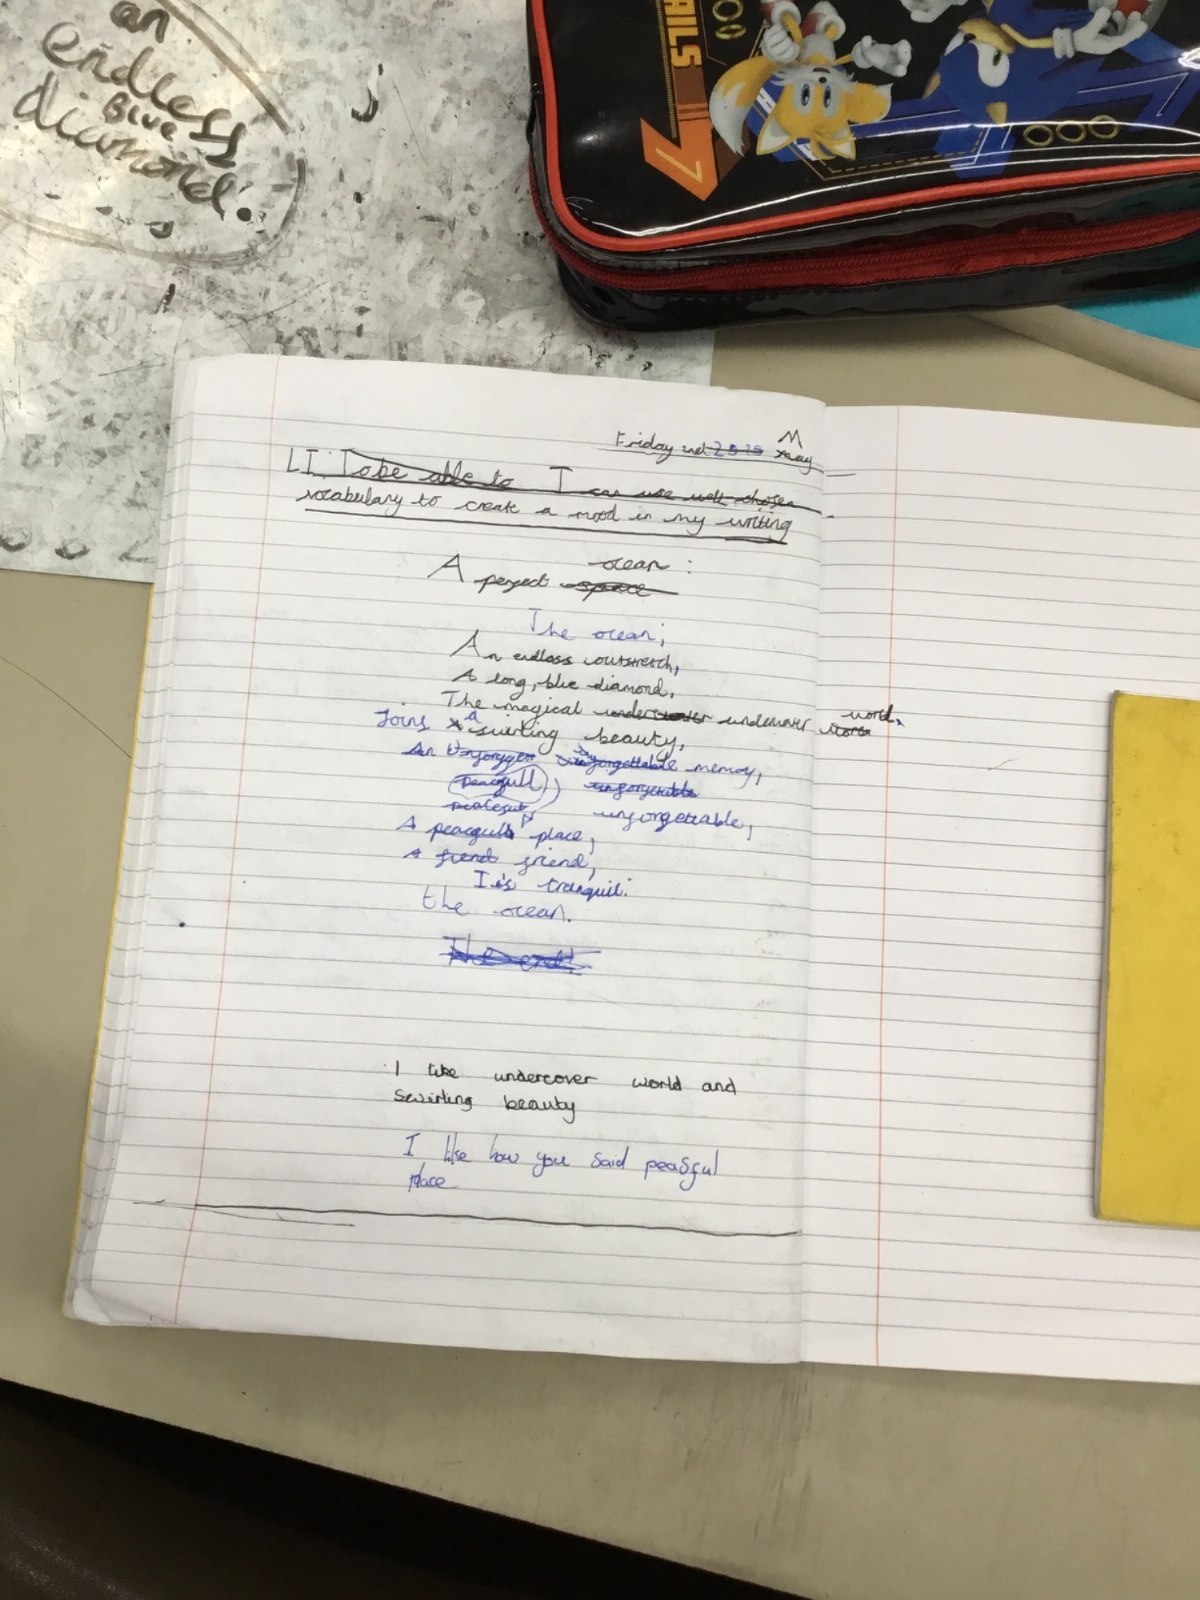 an
endless
Blue
diamond.
AILS
7
Friday 2nd May
LI: To be able to I can use well chosen
vocabulary to create a mood in my writing
A perfect ocean :
The ocean;
An endless outstretch,
A long, blue diamond,
The magical underwater world,
Joins a swirling beauty,
An unforgettable memory,
unforgettable,
A peacefull place,
A friend,
It's tranquil:
the ocean.
The end!
I like undercover world and
swirling beauty
I like how you said peasful
place